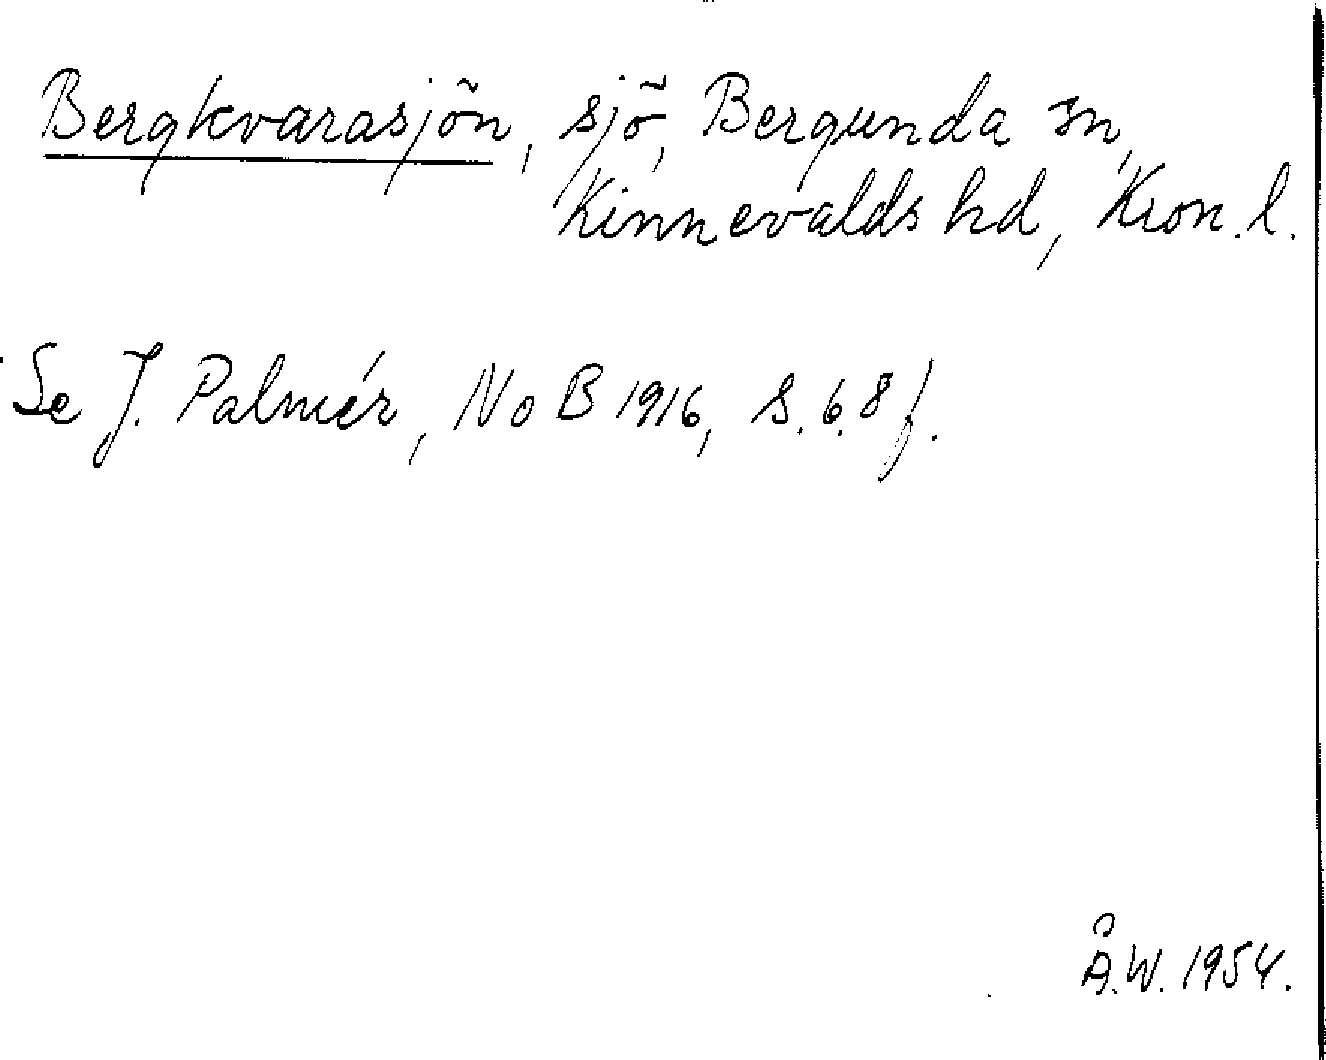 Bergkvarasjön, sjö, Bergunda sn,
Kinnevalds hd, Kron. l.
Se J. Palmér, NoB 1916, s. 68 f.
Å.W. 1954.